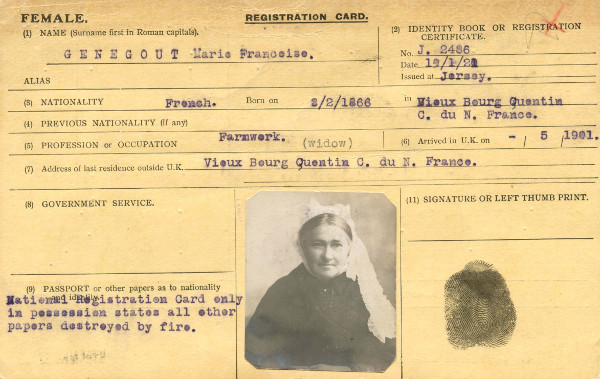 FEMALE.
REGISTRATION CARD.
(1) NAME (Surname first in Roman capitals).
GENEGOUT Marie Francoise.
ALIAS
(2) IDENTITY BOOK OR REGISTRATION
CERTIFICATE.
No. J. 2486
Date 19/1/21
Issued at Jersey.
(3) NATIONALITY French. Born on 2/2/1866 in Vieux Bourg Quentin
C. du N. France.
(4) PREVIOUS NATIONALITY (if any)
(5) PROFESSION or OCCUPATION Farmwork. (widow)
(6) Arrived in U.K. on - 5 1901.
(7) Address of last residence outside U.K. Vieux Bourg Quentin C. du N. France.
(8) GOVERNMENT SERVICE.
(9) PASSPORT or other papers as to nationality
and identity.
National Registration Card only
in possession states all other
papers destroyed by fire.
(11) SIGNATURE OR LEFT THUMB PRINT.